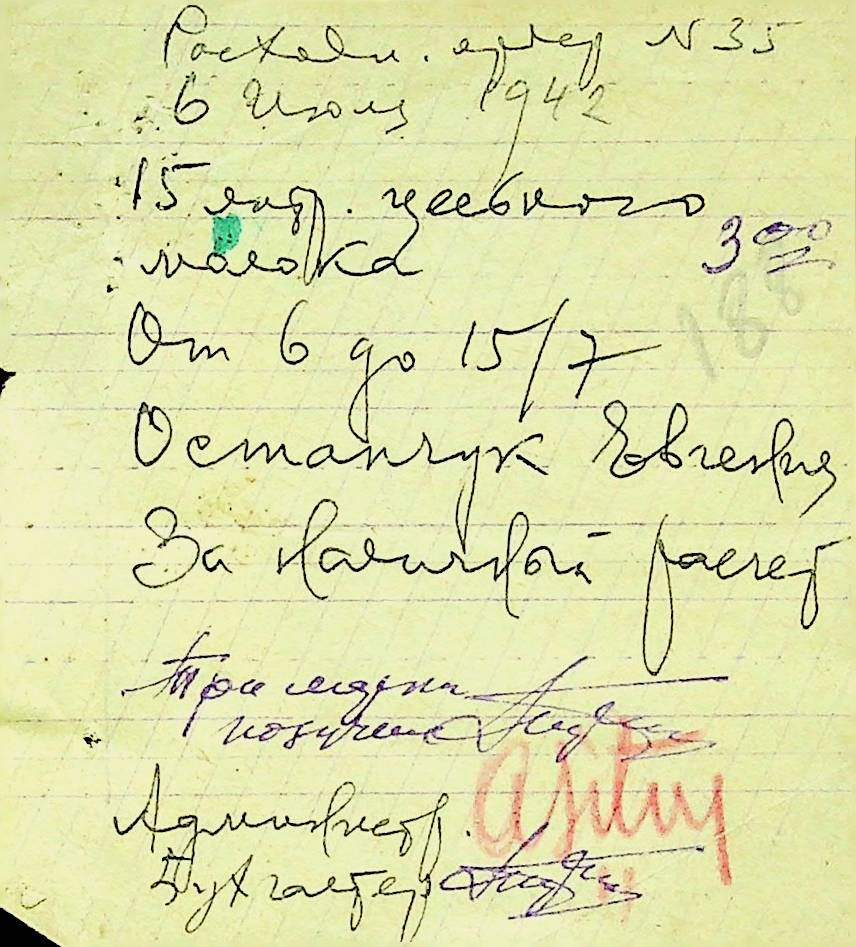 Расходн. ордер N 35
6 Июля 1942
15 литр. цельного
молока
3 00
188
От 6 до 15/7
Остапчук Евгения
За наличный расчет
Три марки
получил
Администр.
Бухгалтер